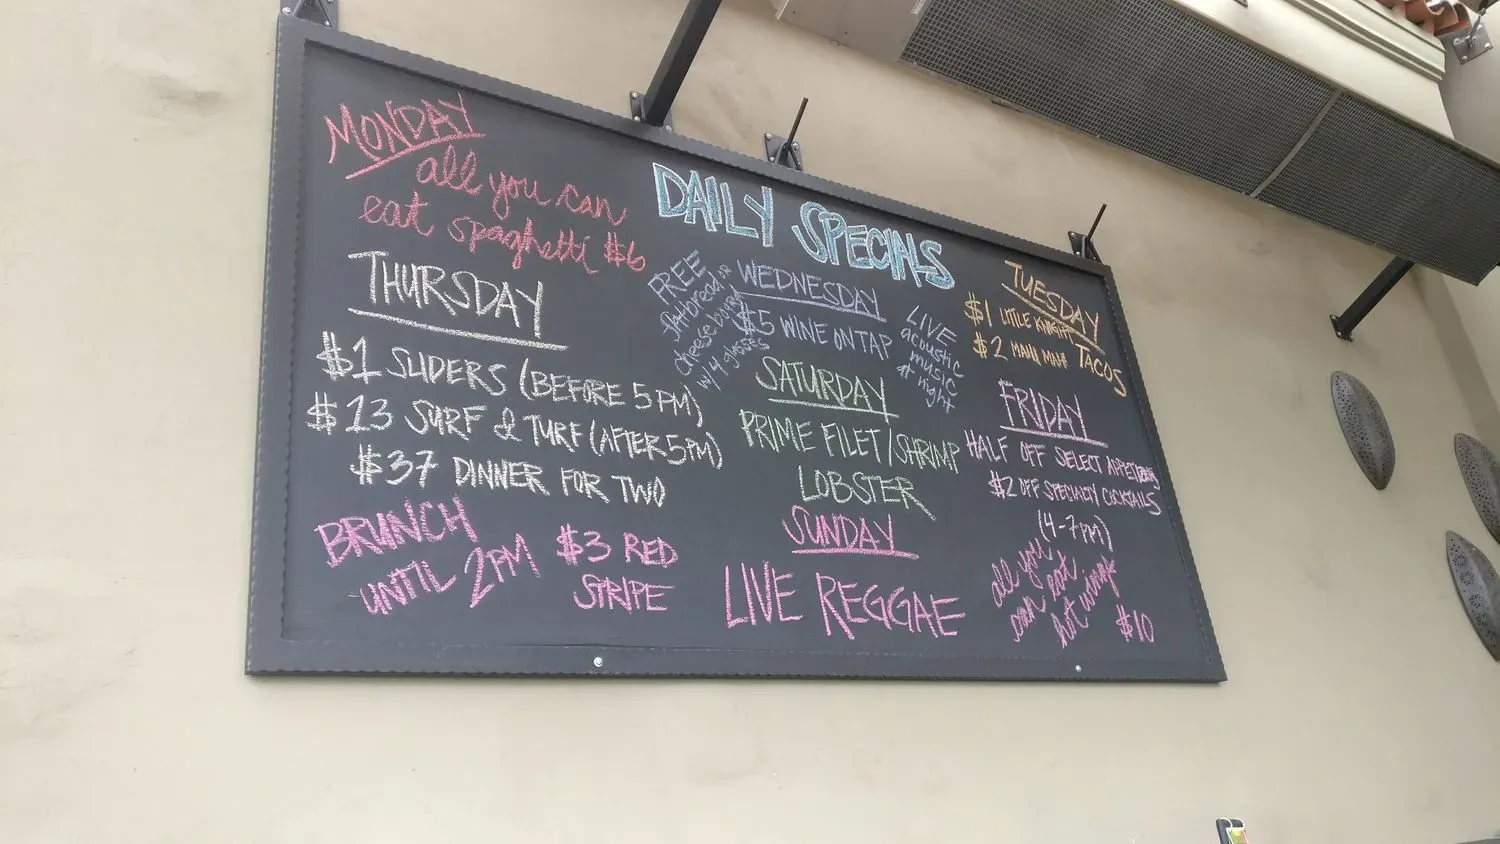 DAILY SPECIALS
MONDAY
all you can
eat spaghetti $6
TUESDAY
$1 LITTLE KNIGHT
$2 MAHI MAHI TACOS
WEDNESDAY
$5 WINE ON TAP
FREE
flatbread or
cheeseboard
w/ 4 glasses
LIVE
acoustic
music
at night
THURSDAY
$1 SLIDERS (BEFORE 5PM)
$13 SURF & TURF (AFTER 5PM)
$37 DINNER FOR TWO
FRIDAY
HALF OFF SELECT APPETIZERS
$2 OFF SPECIALTY COCKTAILS
(4-7PM)
all you
can eat
hot wings
$10
SATURDAY
PRIME FILET/SHRIMP
LOBSTER
SUNDAY
LIVE REGGAE
BRUNCH
UNTIL 2PM
$3 RED
STRIPE